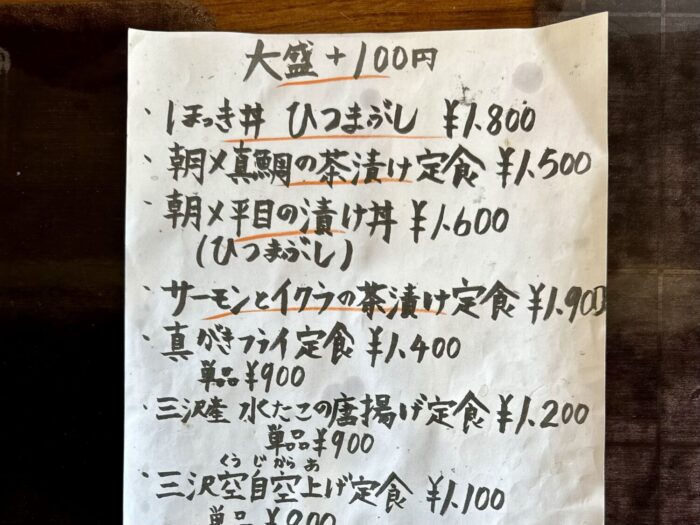 大盛+100円
・ほっき丼 ひつまぶし ¥1.800
・朝〆真鯛の茶漬け定食 ¥1.500
・朝〆平目の漬け丼 ¥1.600
(ひつまぶし)
・サーモンとイクラの茶漬け定食 ¥1.900
・真がきフライ定食 ¥1.400
単品 ¥900
・三沢産 水たこの唐揚げ定食 ¥1.200
単品¥900
くうじからあ
・三沢空自空上げ定食 ¥1.100
単品 ¥800